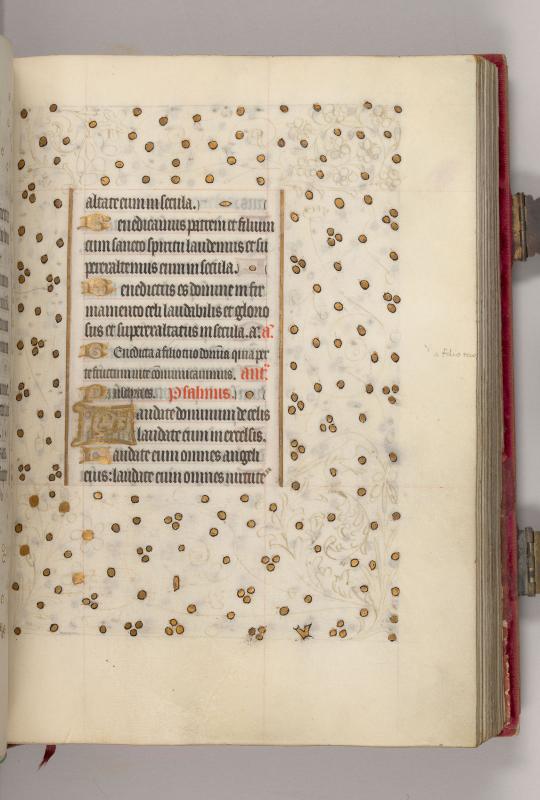 altate eum in secula.
Benedicamus patrem et filium
cum sancto spiritu laudemus et su
perexaltemus eum in secula.
Benedictus es domine in fir
mamento celi laudabilis et glorio
sus et superexaltatus in secula. a. a.
Benedicta a filio tuo domina quia per
te fructum vite communicavimus. ant.
Psalmus.
Laudate dominum de celis
laudate eum in excelsis.
Laudate eum omnes angeli
eius: laudate eum omnes virtute
a filio tuo